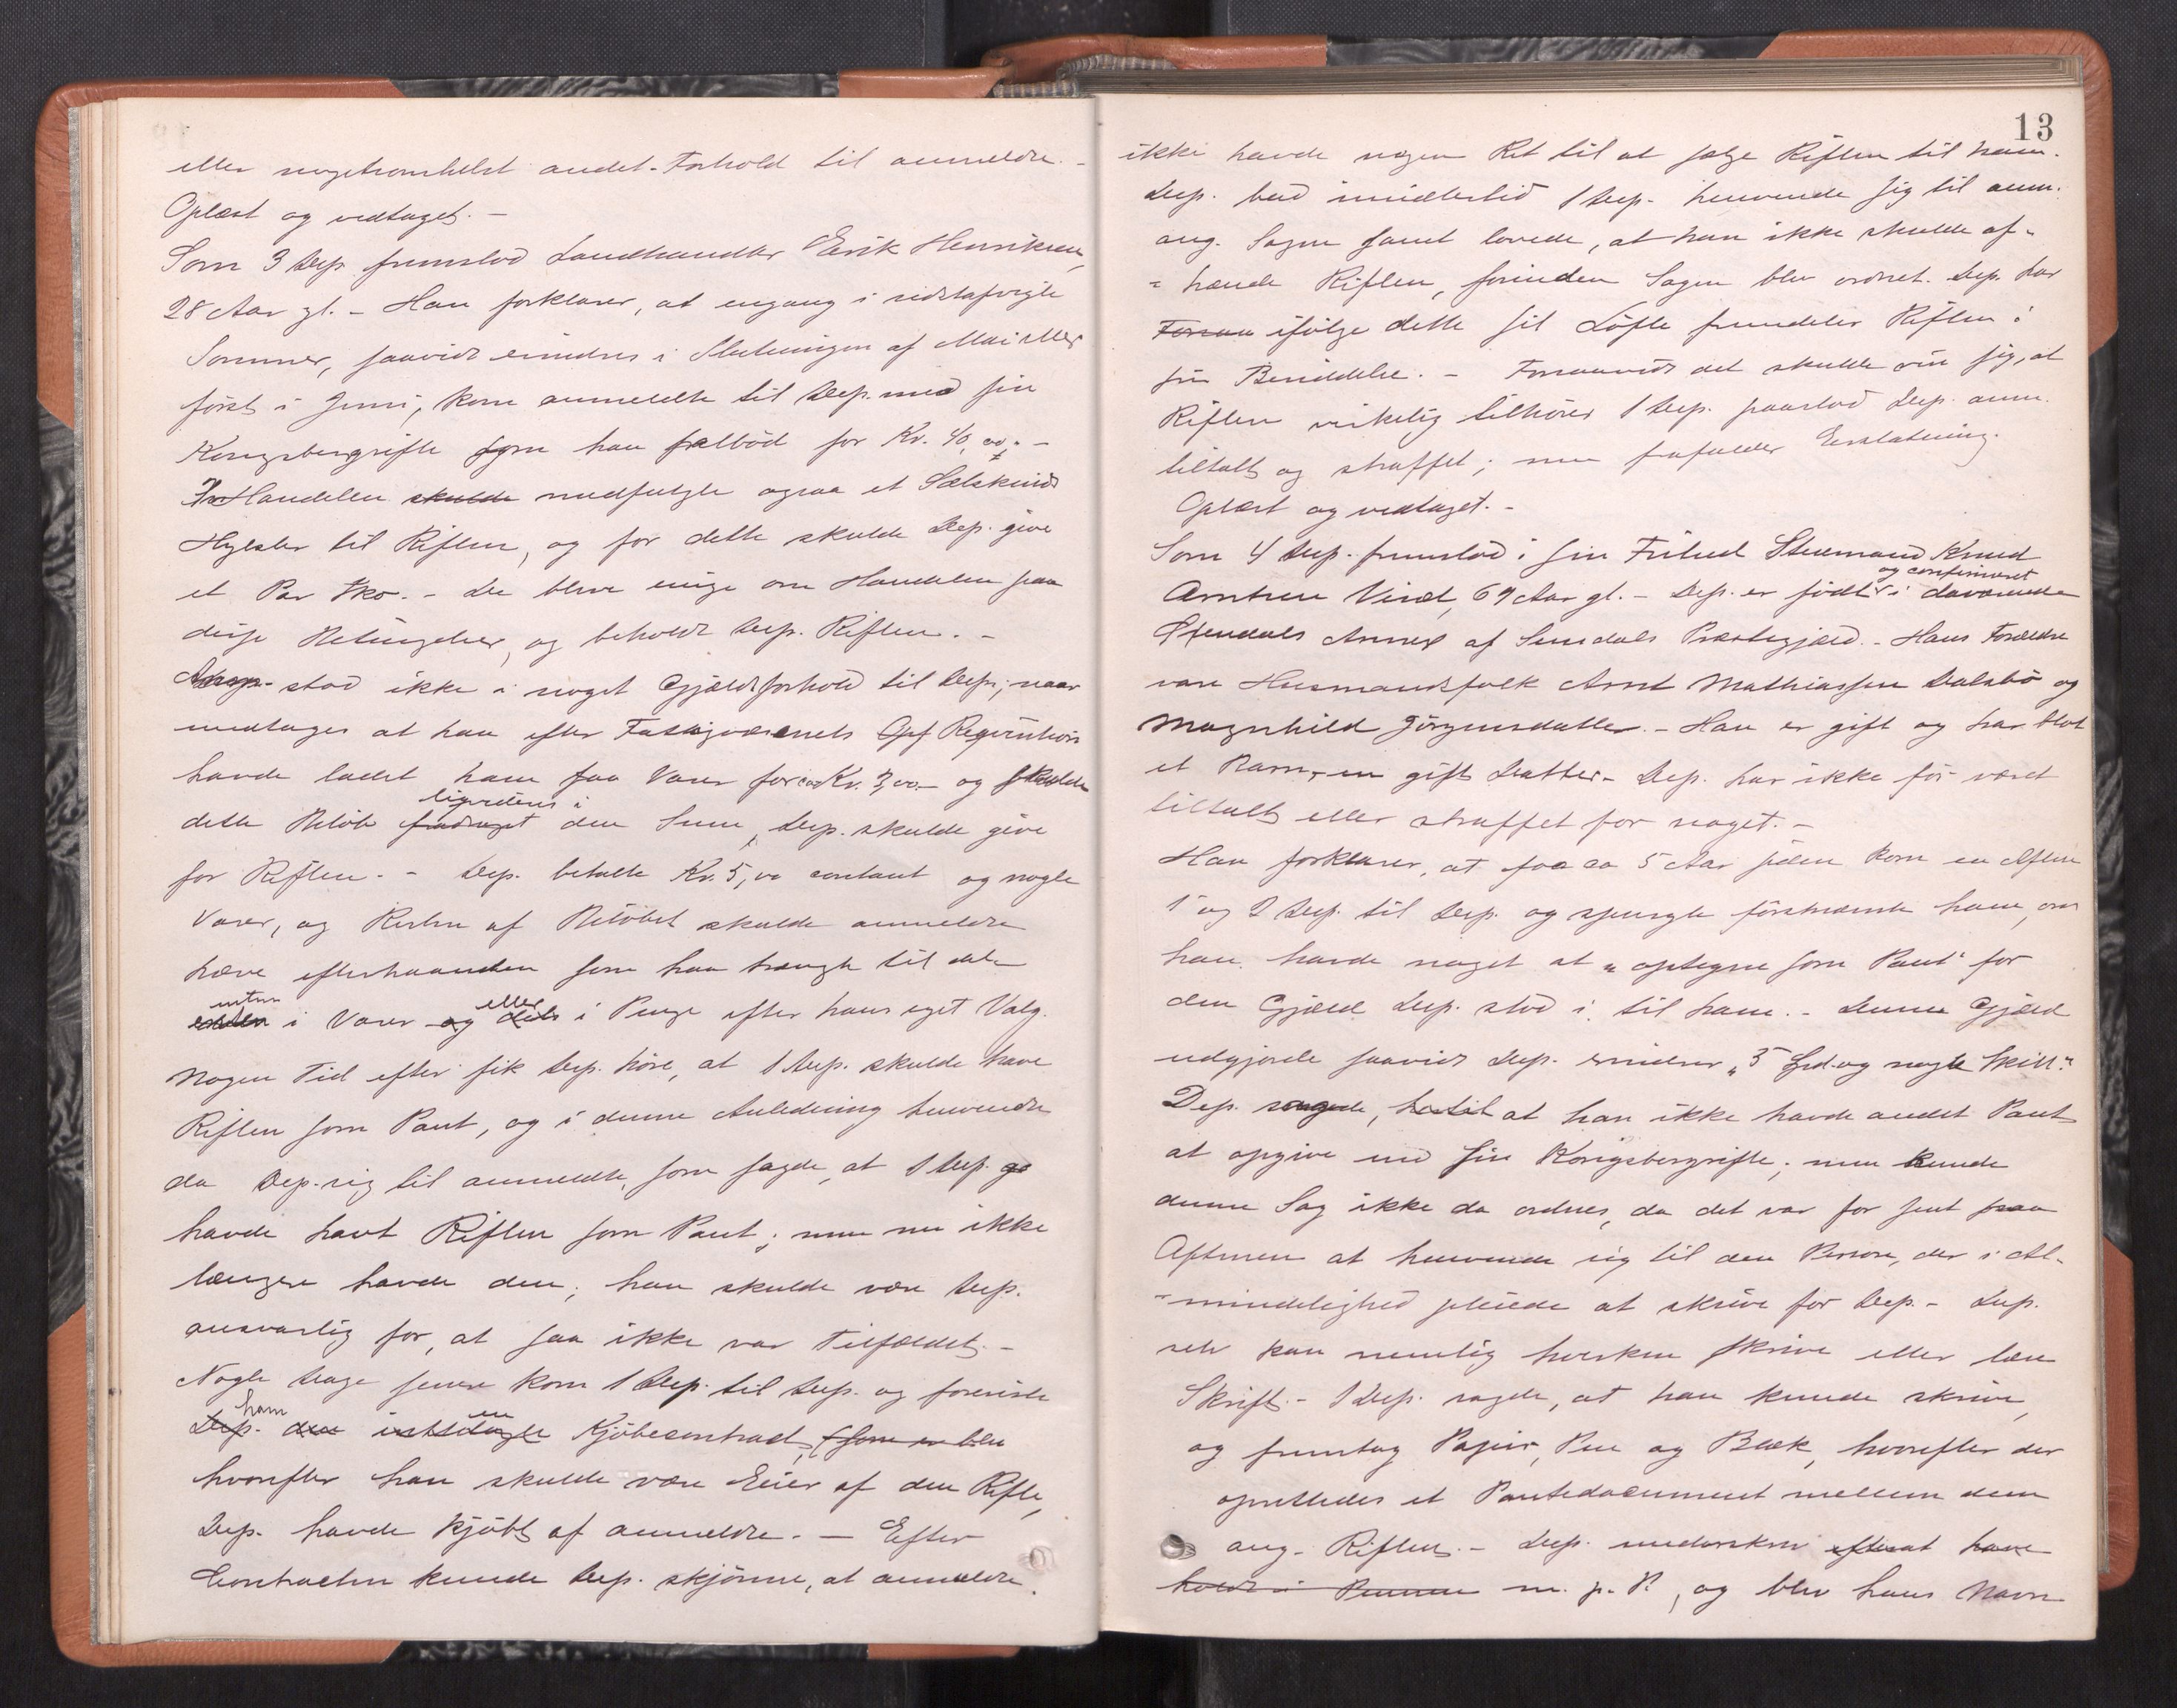 eller nogetsomhelst andet Forhold til anmeldte. -
Oplæst og vedtaget. -
Som 3 Dep. fremstod Landhandler Erik Henriksen,
28 Aar gl. - Han forklarer, at engang i sidstafvigte
Sommer, saavidt erindres i Slutningen af Mai eller
først i Juni, kom anmeldte til Dep. med sin
Kongsbergrifle som han falbød for Kr. 40,00. -
I Handelen skulde medfulgte ogsaa et Sælskinds
Hylster til Riflen, og for dette skulde Dep. give
et Par Sko. - De blev enige om Handelen paa
disse Betingelser, og beholdt Dep. Riflen. -
stod ikke i noget Gjældsforhold til Dep.; naar
undtages at han efter Fattigvæsenets Requisition
havde ladet ham faa Varer for ca Kr. 3,00 - og skulde
dette Beløb fradraget liqvideres i den Sum, Dep. skulde give
for Riflen. - Dep. betalte Kr. 5,00 contant og nogle
Varer, og Resten af Beløbet skulde anmeldte
hæve efterhaanden som han trængte til det
enten i Varer og dels eller i Penge efter hans eget Valg.
Nogen Tid efter fik Dep. høre, at 1 Dep. skulde have
Riflen som Pant, og i denne Anledning henvendte
da Dep. sig til anmeldte, som sagde, at 1 Dep.
havde havt Riflen som Pant; men nu ikke
længere havde den; han skulde være Dep.
ansvarlig for, at saa ikke var Tilfældet. -
Nogle Dage senere kom 1 Dep. til Dep. og foreviste
Dep. ham den en Kjøbecontract, (som er blev
hvorefter han skulde være Eier af den Rifle,
Dep. havde kjøbt af anmeldte. - Efter
Contracten kunde Dep. skjønne, at anmeldte
13
ikke havde nogen Ret til at sælge Riflen til ham.
Dep. bad imidlertid 1 Dep. henvende sig til anm.
ang. Sagen samt lovede, at han ikke skulde af-
hænde Riflen, forinden Sagen blev ordnet. Dep. har
ifølge dette sit Løfte fremdeles Riflen i
sin Besiddelse. - Forsaavidt det skulde vise sig, at
Riflen virkelig tilhører 1 Dep. paastod Dep. anm.
tiltalt og straffet; men frafalder Erstatning.
Oplæst og vedtaget. -
Som 4 Dep. fremstod i sin Frihed Stuemand Knud
Arntsen Vind, 69 Aar gl. - Dep. er født og confirmeret i daværende
Annex af Præstegjæld. - Hans Forældre
vare Husmandsfolk Arnt Mathiassen Dalsbø og
Magnhild Jørgensdatter. - Han er gift og har blot
et Barn, en gift Datter. - Dep. har ikke før været
tiltalt eller straffet for noget. -
Han forklarer, at for ca 5 Aar siden kom en Aften
1 og 2 Dep. til Dep. og spurgte førstnævnte ham, om
han havde noget at "optegne som Pant" for
den Gjæld Dep. stod i til ham. - Denne Gjæld
udgjorde saavidt Dep. erindrer "5 Spd. og nogle Skill."
Dep. sagde, hertil at han ikke havde andet Pant
at opgive end sin Kongsbergrifle; men kunde
denne Sag ikke da ordnes, da det var for sent paa
Aftenen at henvende sig til den Person, der i Al-
mindelighed pleiede at skrive for Dep. - Dep.
selv kan nemlig hverken skrive eller læse
Skrift. - 1 Dep. sagde, at han kunde skrive,
og fremtog Papir, Pen og Blæk, hvorefter der
oprettedes et Pantedocument mellem dem
ang. Riflen. - Dep. underskrev efterat have
holdt i Pennen m. p. P., og blev hans Navn